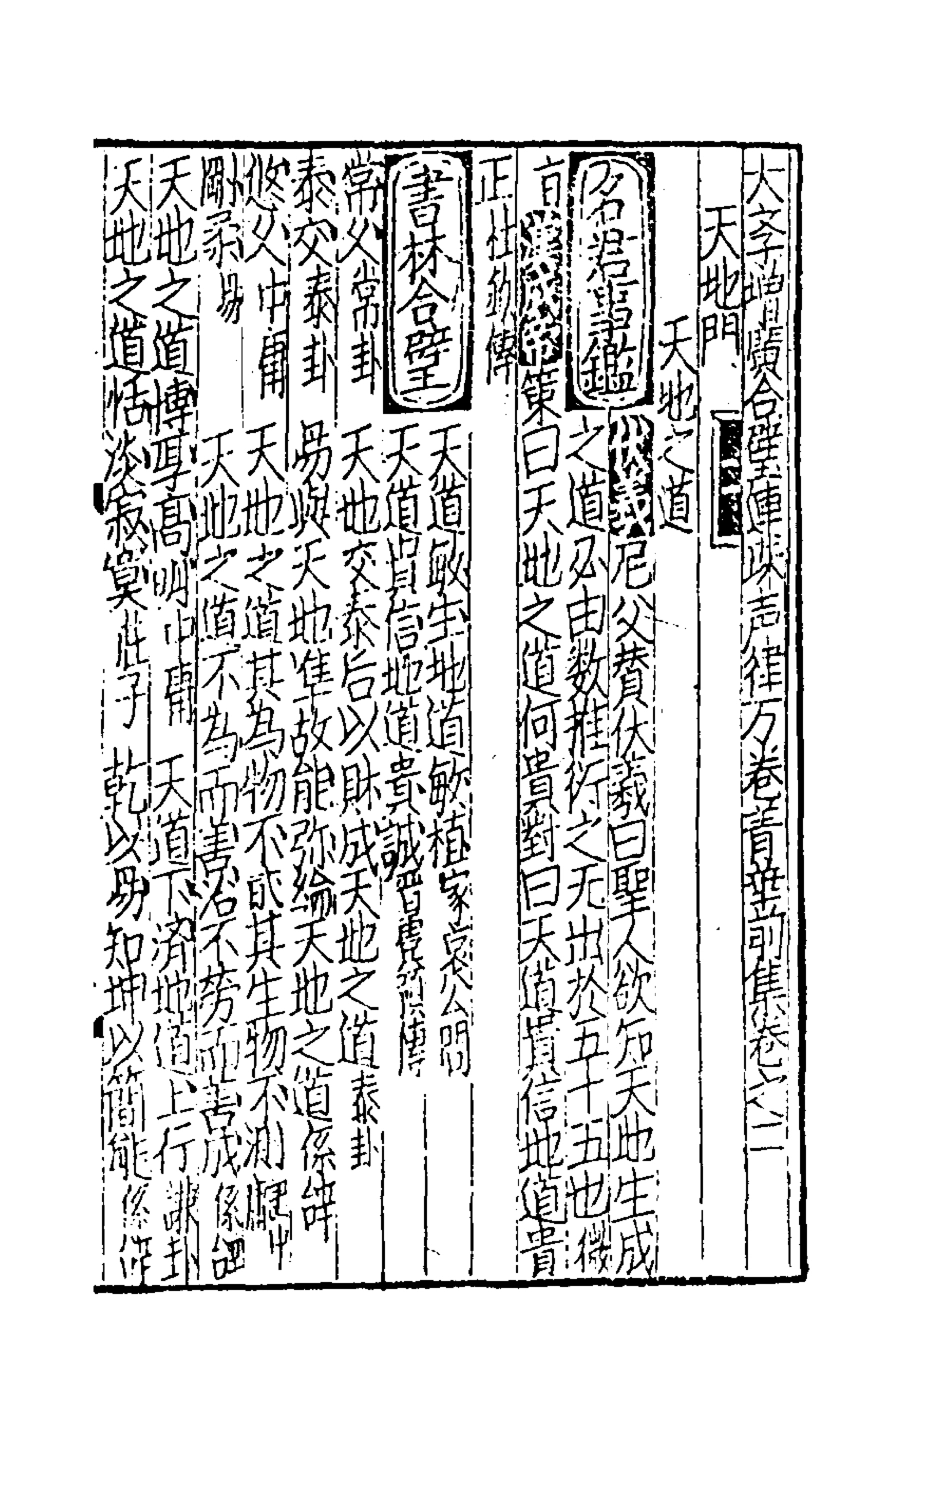 大斈增廣合璧連珠声律万卷菁華前集卷之二
天地門
天地之道
名君事鑑
伏羲尼父賛伏羲曰聖人欲知天地生成
之道必由数推衍之无出於五十五也微
言漢武帝策曰天地之道何貴對曰天道貴信地道貴
正杜欽傳
書林合璧
天道敏生地道敏植家哀公問
天道貴信地道貴誠晉虞預傳
常久常卦 天地交泰后以財成天地之道泰卦
泰交泰卦 易與天地隼故能弥綸天地之道係辞
悠久中庸 天地之道其為物不貳其生物不測中
剛柔易 天地之道不為而善治不劳而善成係
天地之道博厚高明中庸 天道下濟地道上行謙卦
天地之道恬淡寂寞莊子 乾以易知坤以簡能係